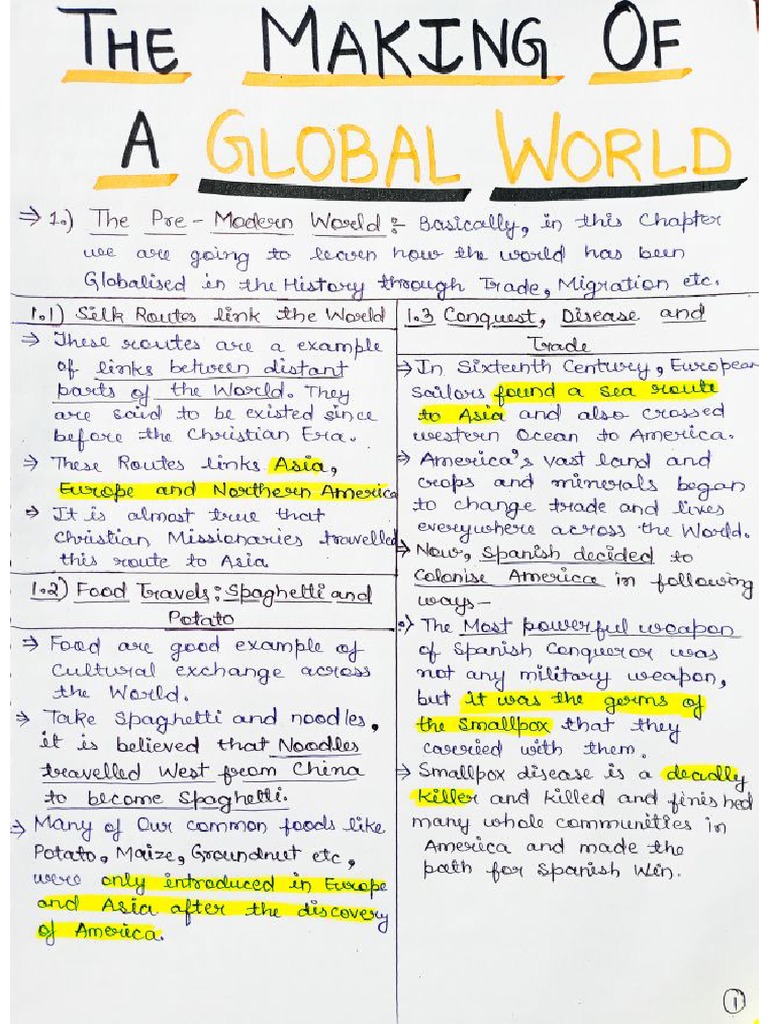 THE MAKING OF
A GLOBAL WORLD
⇒ 1.) The Pre-Modern World:- Basically, in this Chapter
we are going to learn how the world has been
Globalised in the History through Trade, Migration etc.
1.1) Silk Routes link the World
⇒ These routes are a example
of links between distant
parts of the World. They
are said to be existed since
before the Christian Era.
⇒ These Routes links Asia,
Europe and Northern America
⇒ It is almost true that
Christian Missionaries travelled
this route to Asia
1.2) Food Travels: Spaghetti and
Potato
⇒ Food are good example of
Cultural exchange across
the World.
⇒ Take Spaghetti and noodles,
it is believed that Noodles
travelled West from China
to become Spaghetti.
⇒ Many of Our common foods like
Potato, Maize, Groundnut etc,
were only introduced in Europe
and Asia after the discovery
of America.
1.3 Conquest, Disease and
Trade
⇒ In Sixteenth Century, European
sailors found a sea route
to Asia and also crossed
western Ocean to America.
⇒ America's vast land and
crops and minerals began
to change trade and lives
everywhere across the World.
⇒ Now, Spanish decided to
Colonise America in following
ways-
•) The Most powerful weapon
of Spanish Conqueror was
not any military weapon,
but it was the germs of
the Smallpox that they
carried with them.
⇒ Smallpox disease is a deadly
killer and killed and finished
many whole communities in
America and made the
path for Spanish Win.
1